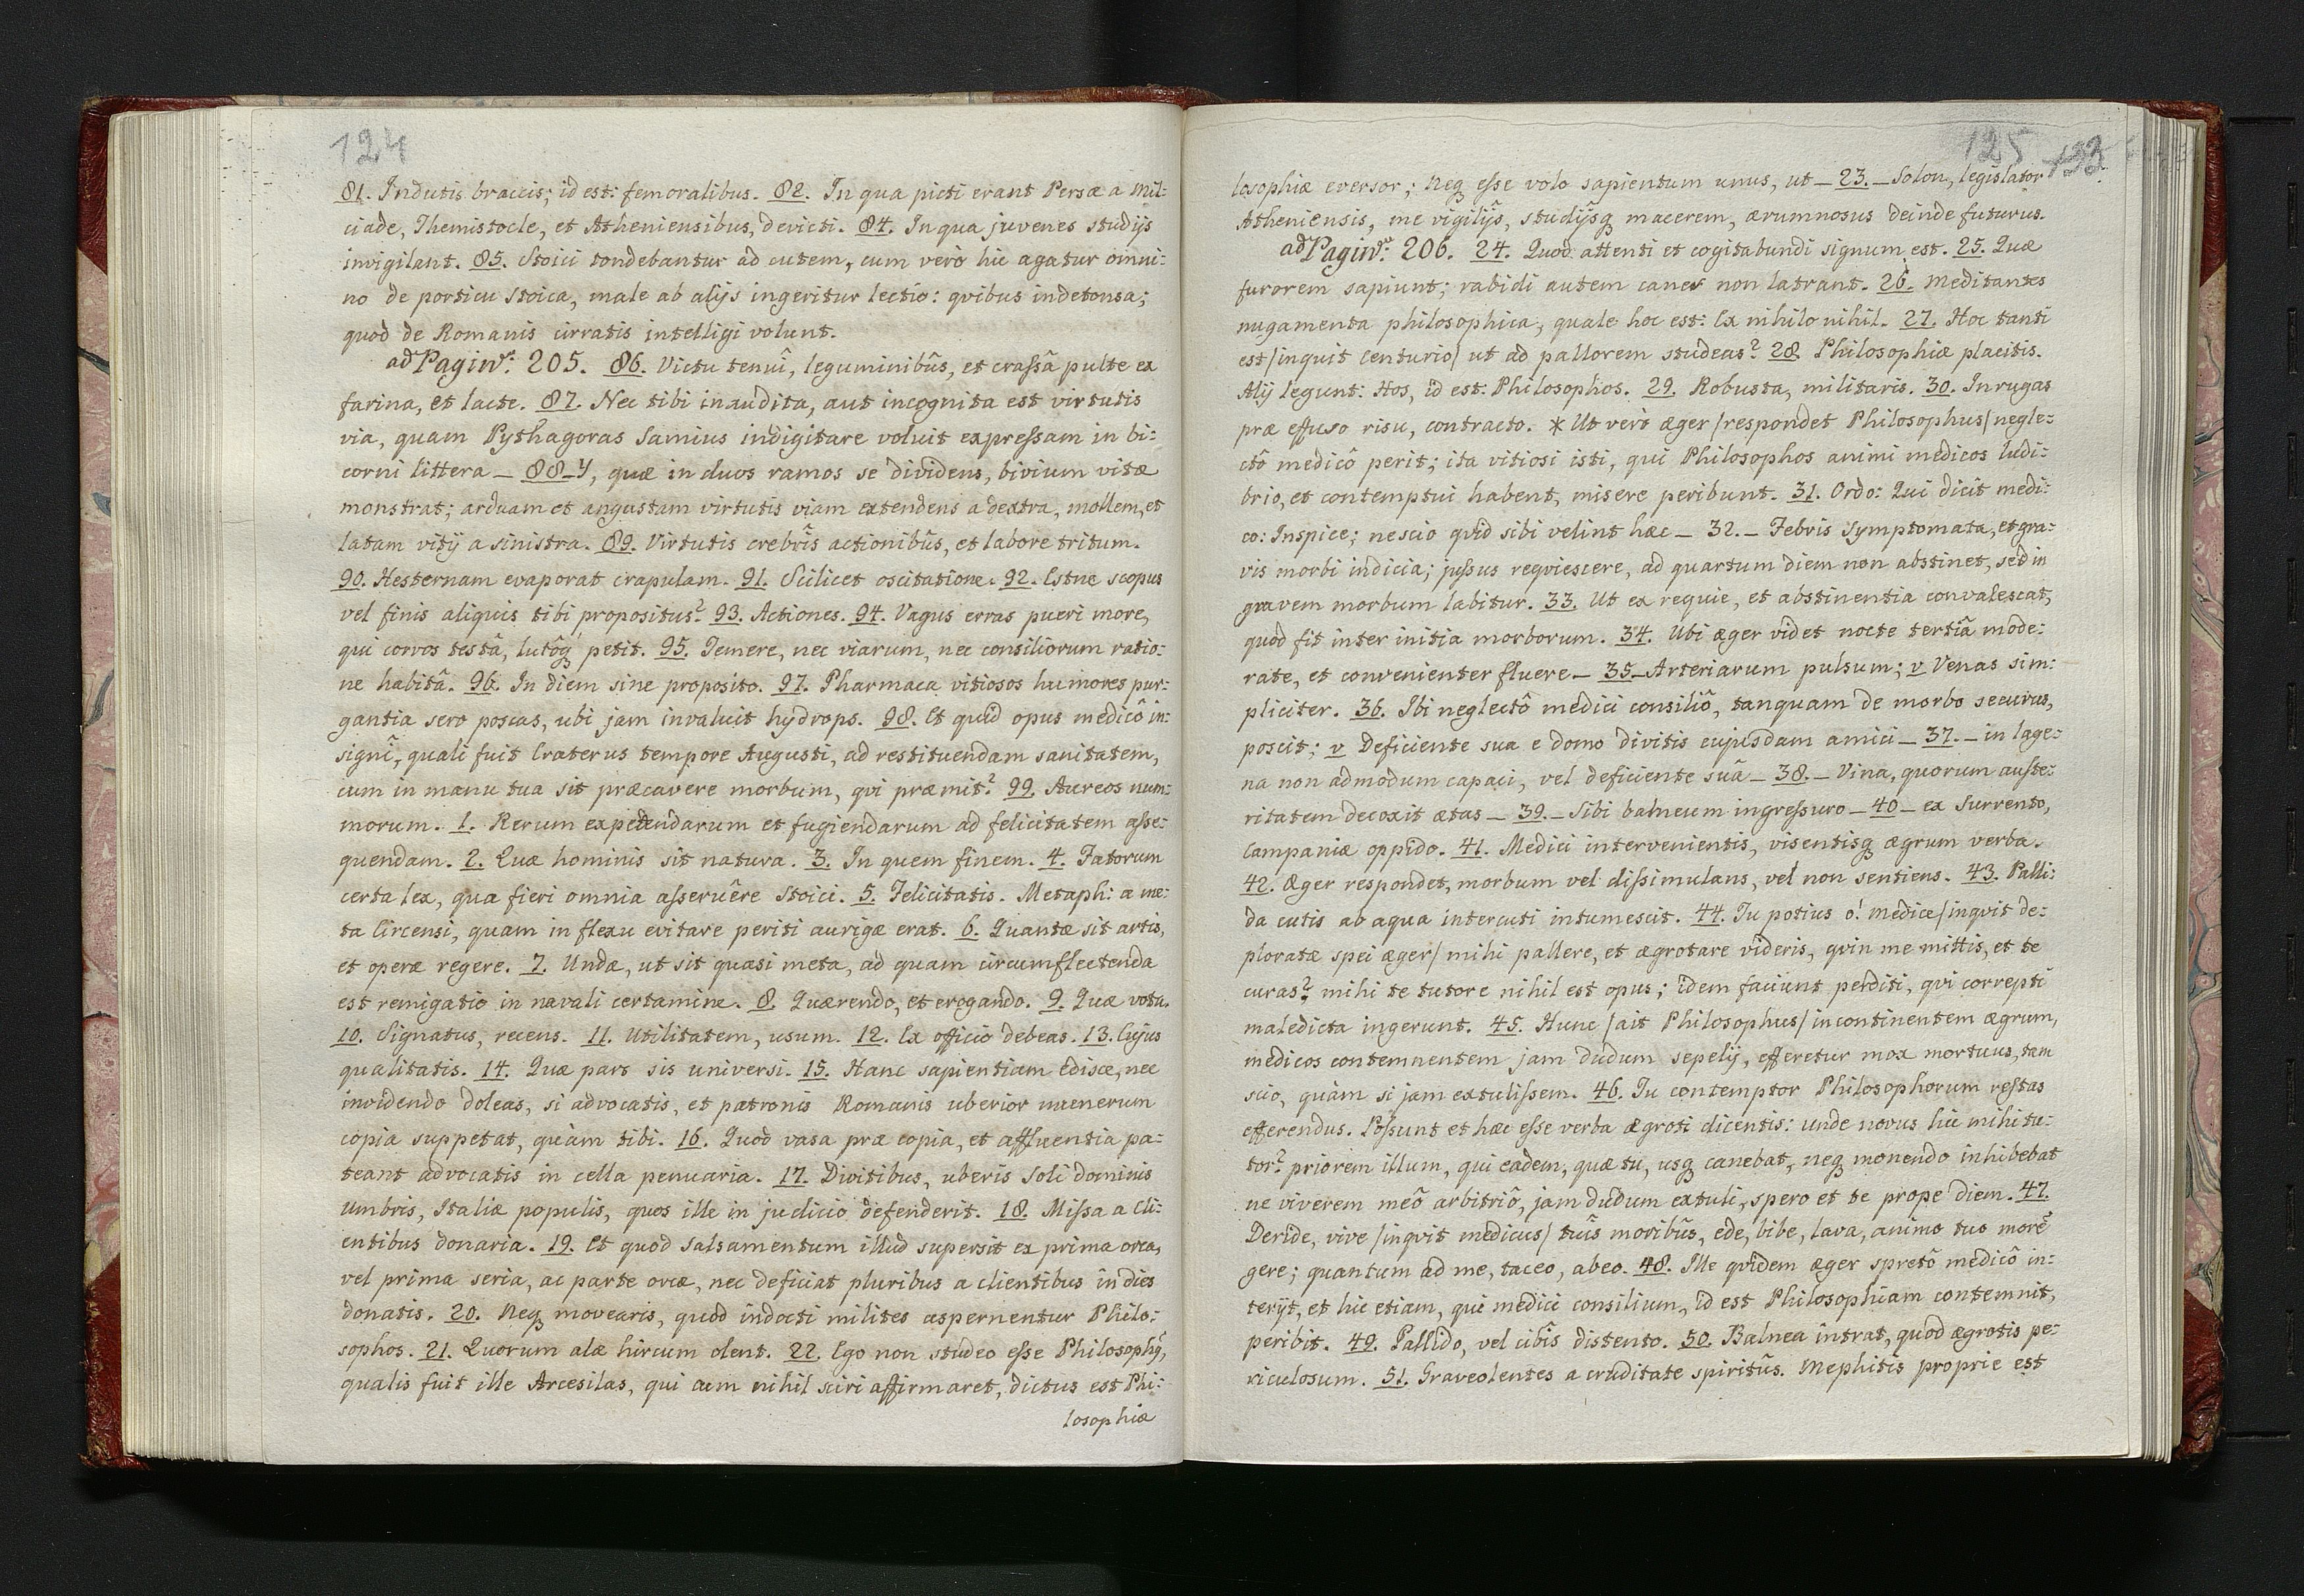 124
81. Indutis braccis; id est: femoralibus. 82. In qua picti erant Persæ a Mil:
ciade, Themistocle, et Atheniensibus, devicti. 84. In qua juvenes studijs
invigilant. 85. Stoici tondebantur ad cutem, cum verò hic agatur omni:
no de porticu stoica, male ab alijs ingeritur lectio: qvibus indetonsa;
quod de Romanis cirratis intelligi volunt.
ad Pagin: 205. 86. Victu tenuî, leguminibûs, et crassâ pulte ex
farina, et lacte. 87. Nec tibi inaudita, aut incognita est virtutis
via, quam Pythagoras Samius indigitare voluit expressam in bi:
corni littera _ 88_y, quæ in duos ramos se dividens, bivium vitæ
monstrat; arduam et angustam virtutis viam extendens a dextra, mollem, et
latam vitij a sinistra. 89. Virtutis crebrîs actionibûs, et labore tritum.
90. Hesternam evaporat crapulam. 91. Scilicet oscitatione. 92. Estne scopus
vel finis aliquis tibi propositus? 93. Actiones. 94. Vagus erras pueri more,
qui corvos testâ, lutôq petit. 95. Temere, nec viarum, nec consiliorum ratio:
ne habitâ. 96. In diem sine proposito. 97. Pharmaca vitiosos humores pur:
gantia sero poscas, ubi jam invaluit hydrops. 98. Et quid opus medicô in:
signî, quali fuit Craterus tempore Augusti, ad restituendam sanitatem,
cum in manu tua sit præcavere morbum, qvi præmit? 99. Aureos num:
morum. 1. Rerum expetendarum et fugiendarum ad felicitatem asse:
quendam. 2. Quæ hominis sit natura. 3. In quem finem. 4. Fatorum
certa lex, qua fieri omnia asseruêre Stoici. 5. Felicitatis. Metaph: a me:
ta Circensi, quam in flexu evitare periti aurigæ erat. 6. Quantæ sit artis,
et operæ regere. 7. Undæ, ut sit quasi meta, ad quam circumflectenda
est remigatio in navali certamine. 8. Quærendo, et erogando. 9. Quæ vota.
10. Signatus, recens. 11. Utilitatem, usum. 12. Ex officio debeas. 13. Cujus
qualitatis. 14. Quæ pars sis universi. 15. Hanc sapientiam edisce, nec
invidendo doleas, si advocatis, et patronis Romanis uberior munerum
copia suppetat, quàm tibi. 16. Quod vasa præ copia, et affluentia pa:
teant advocatis in cella penuaria. 17. Divitibus, uberis soli dominis
Umbris, Italiæ populis, quos ille in judicio defenderit. 18. Missa a Cli:
entibus donaria. 19. Et quod salsamentum illud supersit ex prima orca,
vel prima seria, ac parte orcæ, nec deficiat pluribus a clientibus in dies
donatis. 20. Neq movearis, quod indocti milites aspernentur Philo:
sophos. 21. Quorum alæ hircum olent. 22. Ego non studeo esse Philosophq,
qualis fuit ille Arcesilas, qui cum nihil sciri affirmaret, dictus est Phi:
losophiæ
125 133
losophiæ eversor; Neq esse volo sapientum unus, ut _ 23. _ Solon, legislator
Atheniensis, me vigilijs, studijsq macerem, ærumnosus deinde futurus.
ad Pagin: 206. 24. Quod attenti et cogitabundi signum est. 25. Quæ
furorem sapiunt; rabidi autem canes non latrant. 26. Meditantes
nugamenta philosophica, quale hoc est: Ex nihilo nihil. 27. Hoc tanti
est /inquit Centurio/ ut ad pallorem studeas? 28. Philosophiæ placitis.
Alij legunt: Hos, id est: Philosophos. 29. Robusta, militaris. 30. In rugas
præ effuso risu, contracto. * Ut verò æger /respondet Philosophus/ negle:
ctô medicô perit; ita vitiosi isti, qui Philosophos animi medicos ludi:
brio, et contemptui habent, misere peribunt. 31. Ordo: Qui dicit medi:
co: Inspice; nescio qvid sibi velint hæc _ 32. _ Febris Symptomata, et gra:
vis morbi indicia; jussus reqviescere, ad quartum diem non abstinet, sed in
gravem morbum labitur. 33. Ut ex requie, et abstinentia convalescat,
quod fit inter initia morborum. 34. Ubi æger videt nocte tertiâ mode:
rate, et convenienter fluere _ 35_Arteriarum pulsum; v Venas sim:
pliciter. 36. Ibi neglectô medici consiliô, tanquam de morbo securus,
poscit; v Deficiente sua e domo divitis cujusdam amici _ 37. _ in lage:
na non admodum capaci, vel deficiente suâ _ 38. _ Vina, quorum auste:
ritatem decoxit ætas _ 39. _ Sibi balneum ingressuro _ 40 _ ex Surrento,
Campaniæ oppido. 41. Medici intervenientis, visentisq ægrum verba.
42. Æger respondet, morbum vel dissimulans, vel non sentiens. 43. Palli:
da cutis ab aqua intercuti intumescit. 44. Tu potius o! medice /inqvit de:
ploratæ spei æger/ mihi pallere, et ægrotare videris, qvin me mittis, et te
curas? mihi te tutore nihil est opus; idem faciunt perditi, qvi correpti
maledicta ingerunt. 45. Hunc /ait Philosophus/ incontinentem ægrum,
medicos contemnentem jam dudum sepelij, efferetur mox mortuus, tam
scio, quàm si jam extulissem. 46. Tu contemptor Philosophorum restas
efferendus. Possunt et hæc esse verba ægroti dicentis: unde novus hic mihi tu:
tor? priorem illum, qui eadem, quæ tu, usq canebat, neq monendo inhibebat
ne viverem meô arbitriô, jam dudum extuli, spero et te prope diem. 47.
Deride, vive /inqvit medicus/ tuîs moribûs, ede, bibe, lava, animo tuo morē
gere; quantum ad me, taceo, abeo. 48. Ille qvidem æger spretô medicô in:
terijt, et hic etiam, qui medici consilium, id est Philosophiam contemnit,
peribit. 49. Pallido, vel cibîs distento. 50. Balnea intrat, quod ægrotis pe:
riculosum. 51. Graveolentes a cruditate spiritûs. Mephitis proprie est